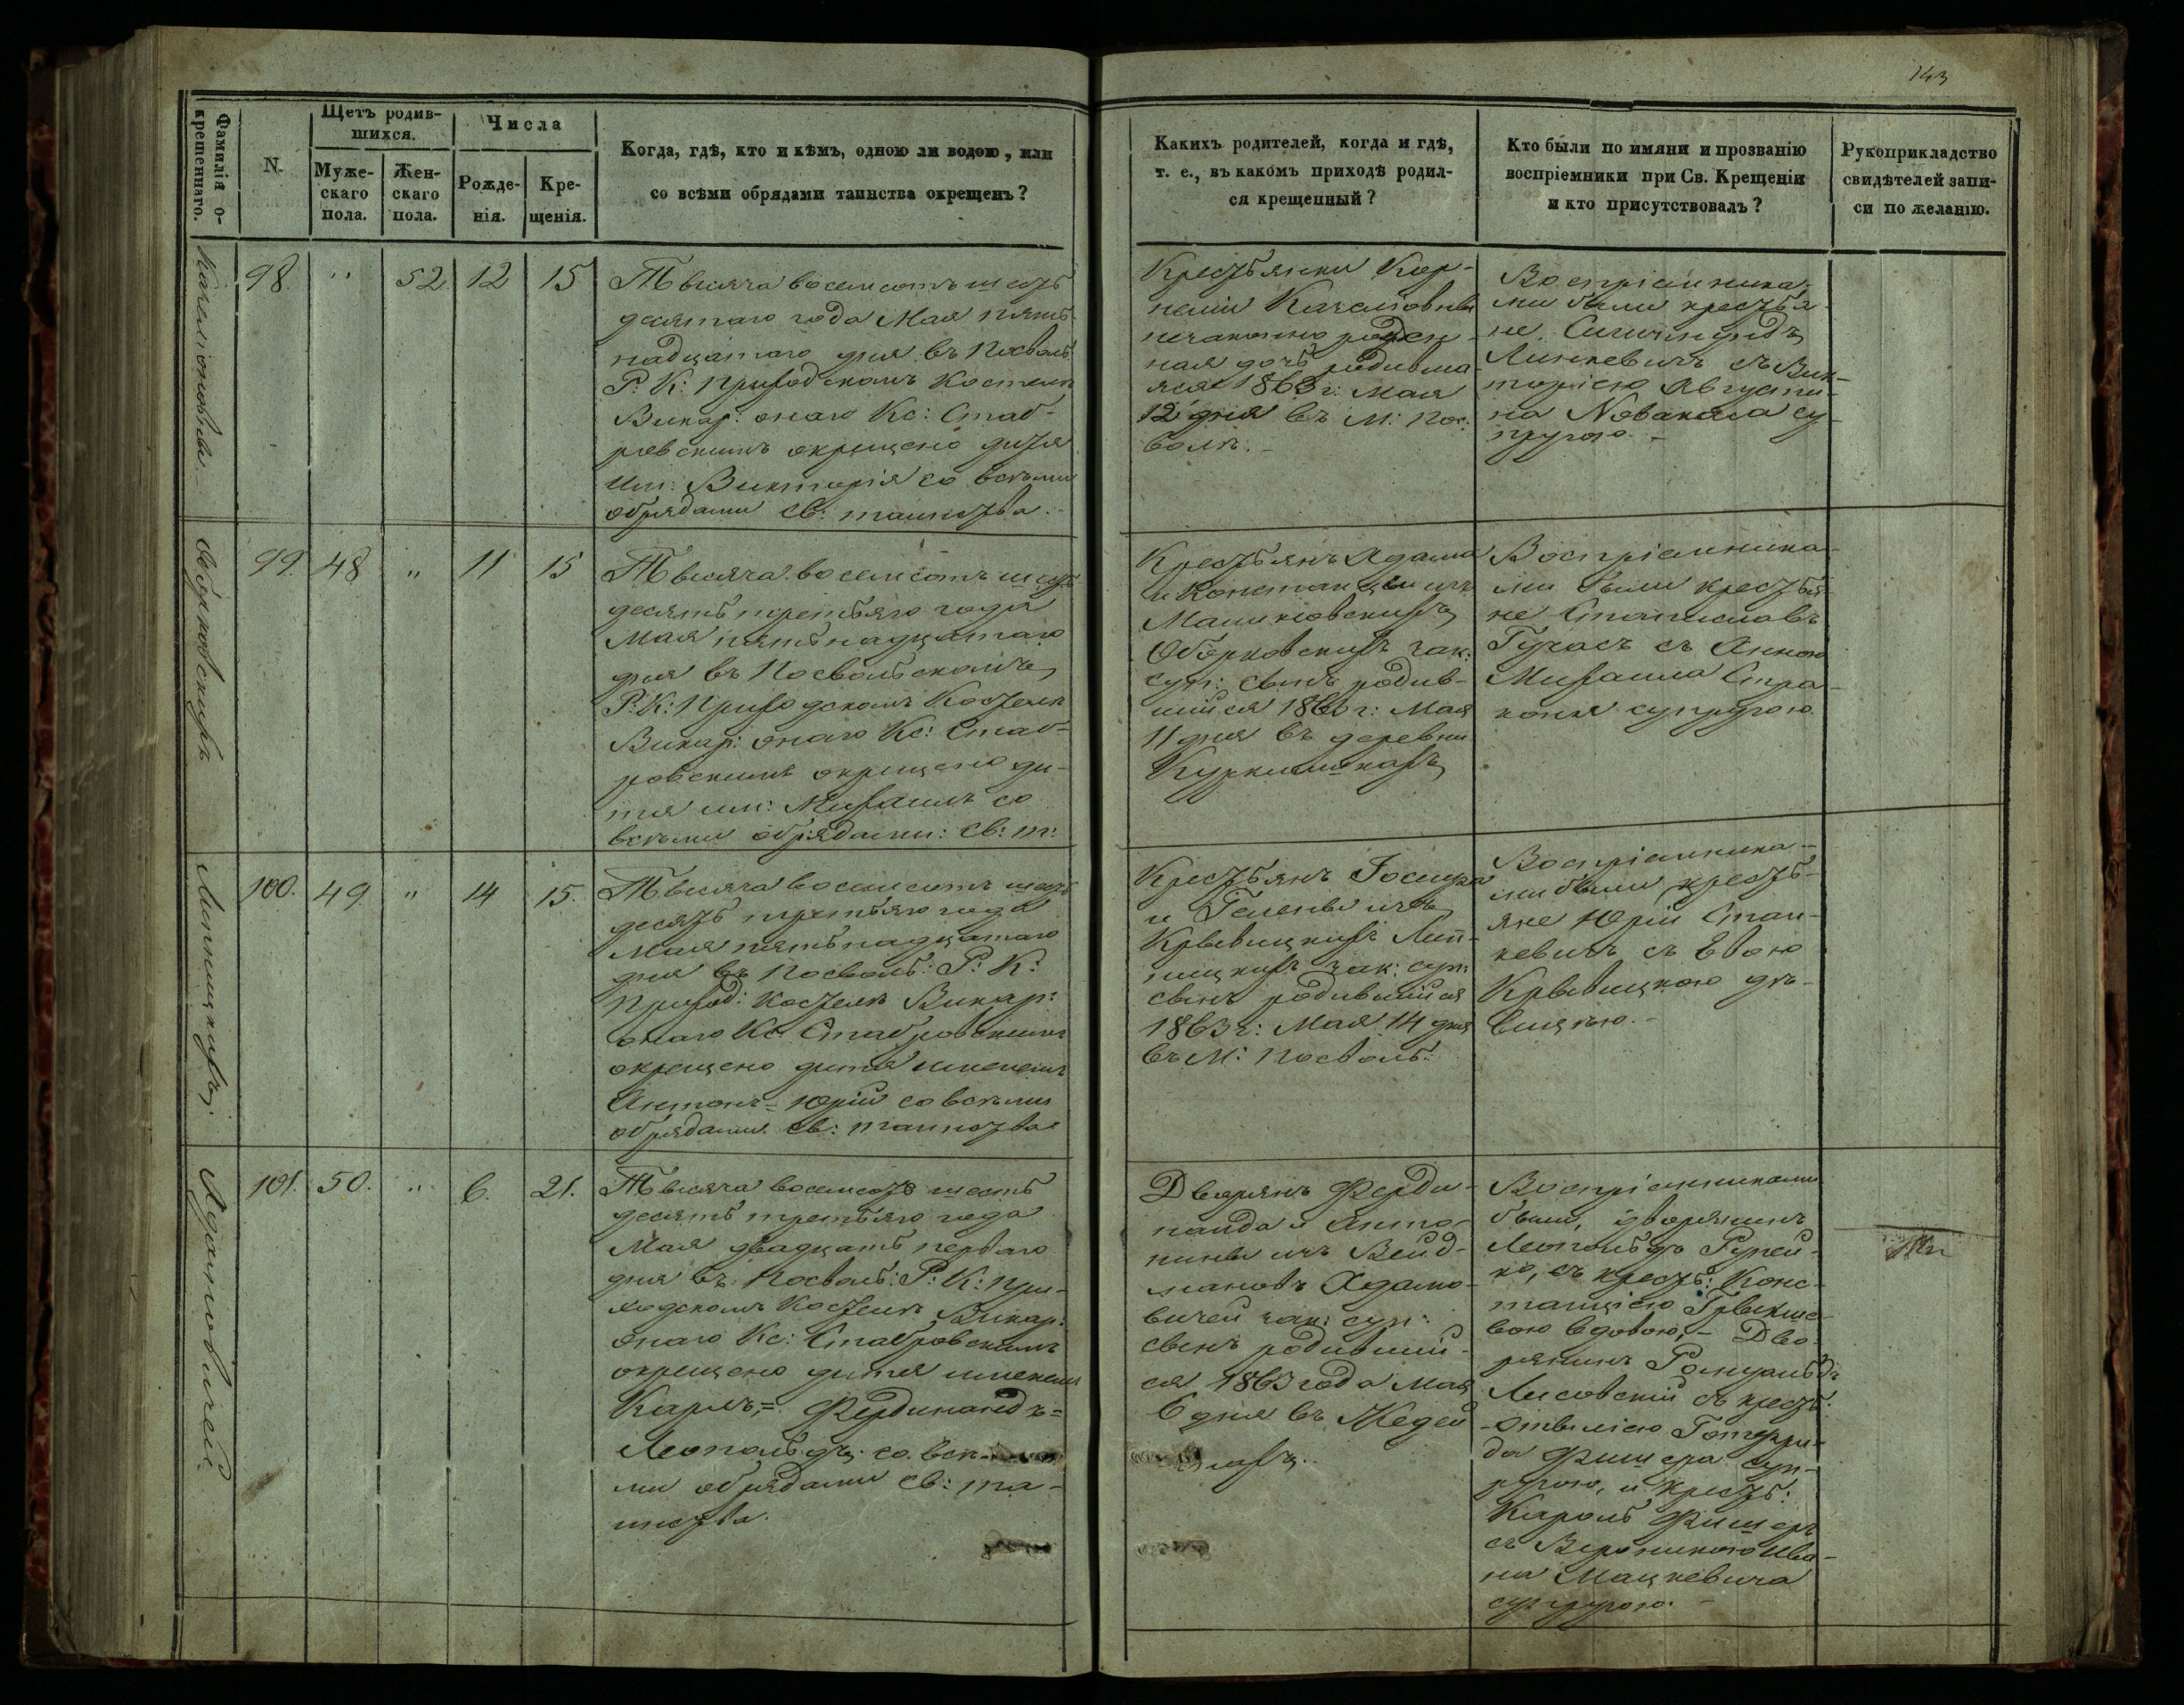 143
Фамилія о-
крещеннаго.
N.
Щетъ родив-
шихся.
Муже-
скаго
пола.
Жен-
скаго
пола.
Числа
Рожде-
нія.
Кре-
щенія.
Когда, гдѣ, кто и кѣмъ, одною ли водою, или
со всѣми обрядами таинства окрещенъ?
Какихъ родителей, когда и гдѣ,
т. е., въ какомъ приходѣ родил-
ся крещенный?
Кто были по имяни и прозванію
воспріемники при Св. Крещеніи
и кто присутствовалъ?
Рукоприкладство
свидѣтелей запи-
си по желанію.
98. " 52 12 15
Тысяча восемсотъ шесть
десятаго года Мая пять
надцатаго дня въ Посволь:
Р: К: Приходскомъ Костелѣ
Викар: онаго Кс: Стаб-
ровскимъ окрещено дитя
им: Викторія со всѣми
обрядами св: таинства.
Крестьянки Кор-
неліи
незаконно рожден-
ная дочь родивша-
яся 1863 г: Мая
12 дня въ М: Пос:
волѣ.
Воспріемника-
ми были крестья-
не Сигизмундъ
Линкевичъ съ Вик-
торіею Августи-
на Новакаса су-
пругою.
Оборковскихъ
99. 48 " 11 15
Тысяча восемсотъ шесть
десятъ третьяго года
Мая пятьнадцатаго
дня въ Посвольскомъ
Р: К: Приходскомъ Костелѣ
Викар: онаго Кс: Стаб-
ровскимъ окрещено ди-
тя им: Михаилъ со
всѣми обрядами: св: т:
Крестьянъ Адама
и Констанціи изъ
Машковскихъ
Оборковскихъ зак:
суп: сынъ родив-
шійся 1863 г: Мая
11 дня въ деревни
Воспріемника-
ми были крестья-
не Станиславъ
съ Анною
Михаила
супругою.
Липницкихъ
100. 49 " 14 15.
Тысяча восемсотъ шесть
десятъ третьяго года
Мая пятьнадцатаго
дня въ Посволь: Р: К:
Приход: Костелѣ Викар:
онаго Кс: Стабровскимъ
окрещено дитя именемъ
Антонъ=Юрій со всѣми
обрядами св: таинства
Крестьянъ Іосифа
и Гелены изъ
Крывицкихъ Лип-
ницкихъ зак: суп:
сынъ родившійся
1863 г: Мая 14 дня
въ М: Посволь:
Воспріемника-
ми были кресть-
яне Юрій Стан-
кевичъ съ Евою
Крывицкою дѣ-
вицею.
Адамовичей
101. 50. " 6. 21.
Тысяча восемсотъ шесть
десятъ третьяго года
Мая двадцать перваго
дня въ Посволь: Р: К: При-
ходскомъ Костелѣ Викар:
онаго Кс: Стабровскимъ
окрещено дитя именемъ
Карлъ,= Фердинандъ=
Леопольдъ, со всѣ-
ми обрядами св: та-
инства.
Дворянъ Ферди-
нанда и Анто-
нины изъ Вейд-
мановъ Адамо-
вичей зак: суп:
сынъ родившій-
ся 1863 года Мая
6 дня въ
Воспріемниками
были, дворянинъ
Леопольдъ Рупей-
ко, съ крест: Конс-
танціею
вою вдовою, - Дво-
рянинъ Ромуальдъ
Лисовскій съ крест:
Готфри-
да Фишера суп-
ругою, и крест:
Кароль Фишеръ
съ Вероникою Ива-
на Мацкевича
супругою.